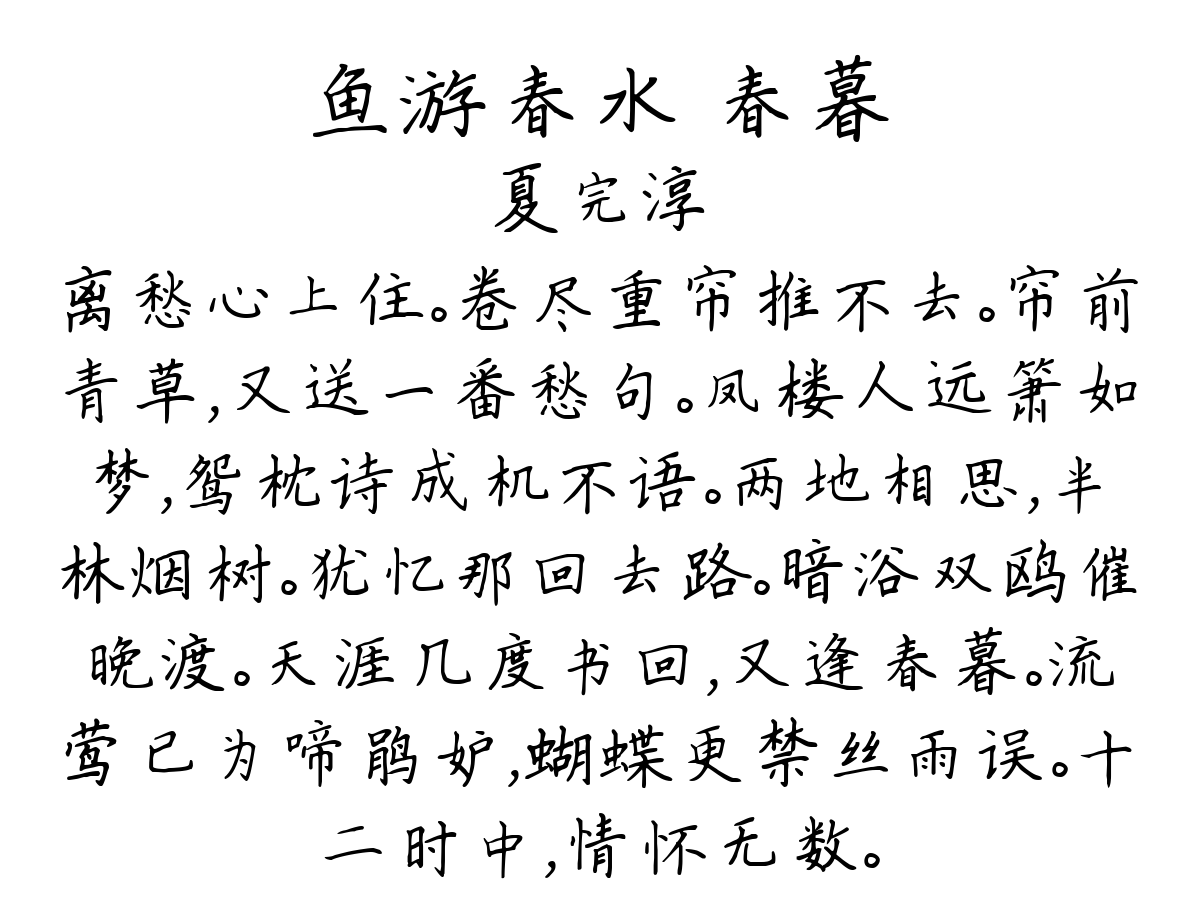 鱼游春水 春暮
夏完淳
离愁心上住。卷尽重帘推不去。帘前
青草,又送一番愁句。凤楼人远箫如
梦,鸳枕诗成机不语。两地相思,半
林烟树。犹忆那回去路。暗浴双鸥催
晚渡。天涯几度书回,又逢春暮。流
莺已为啼鹃妒,蝴蝶更禁丝雨误。十
二时中,情怀无数。